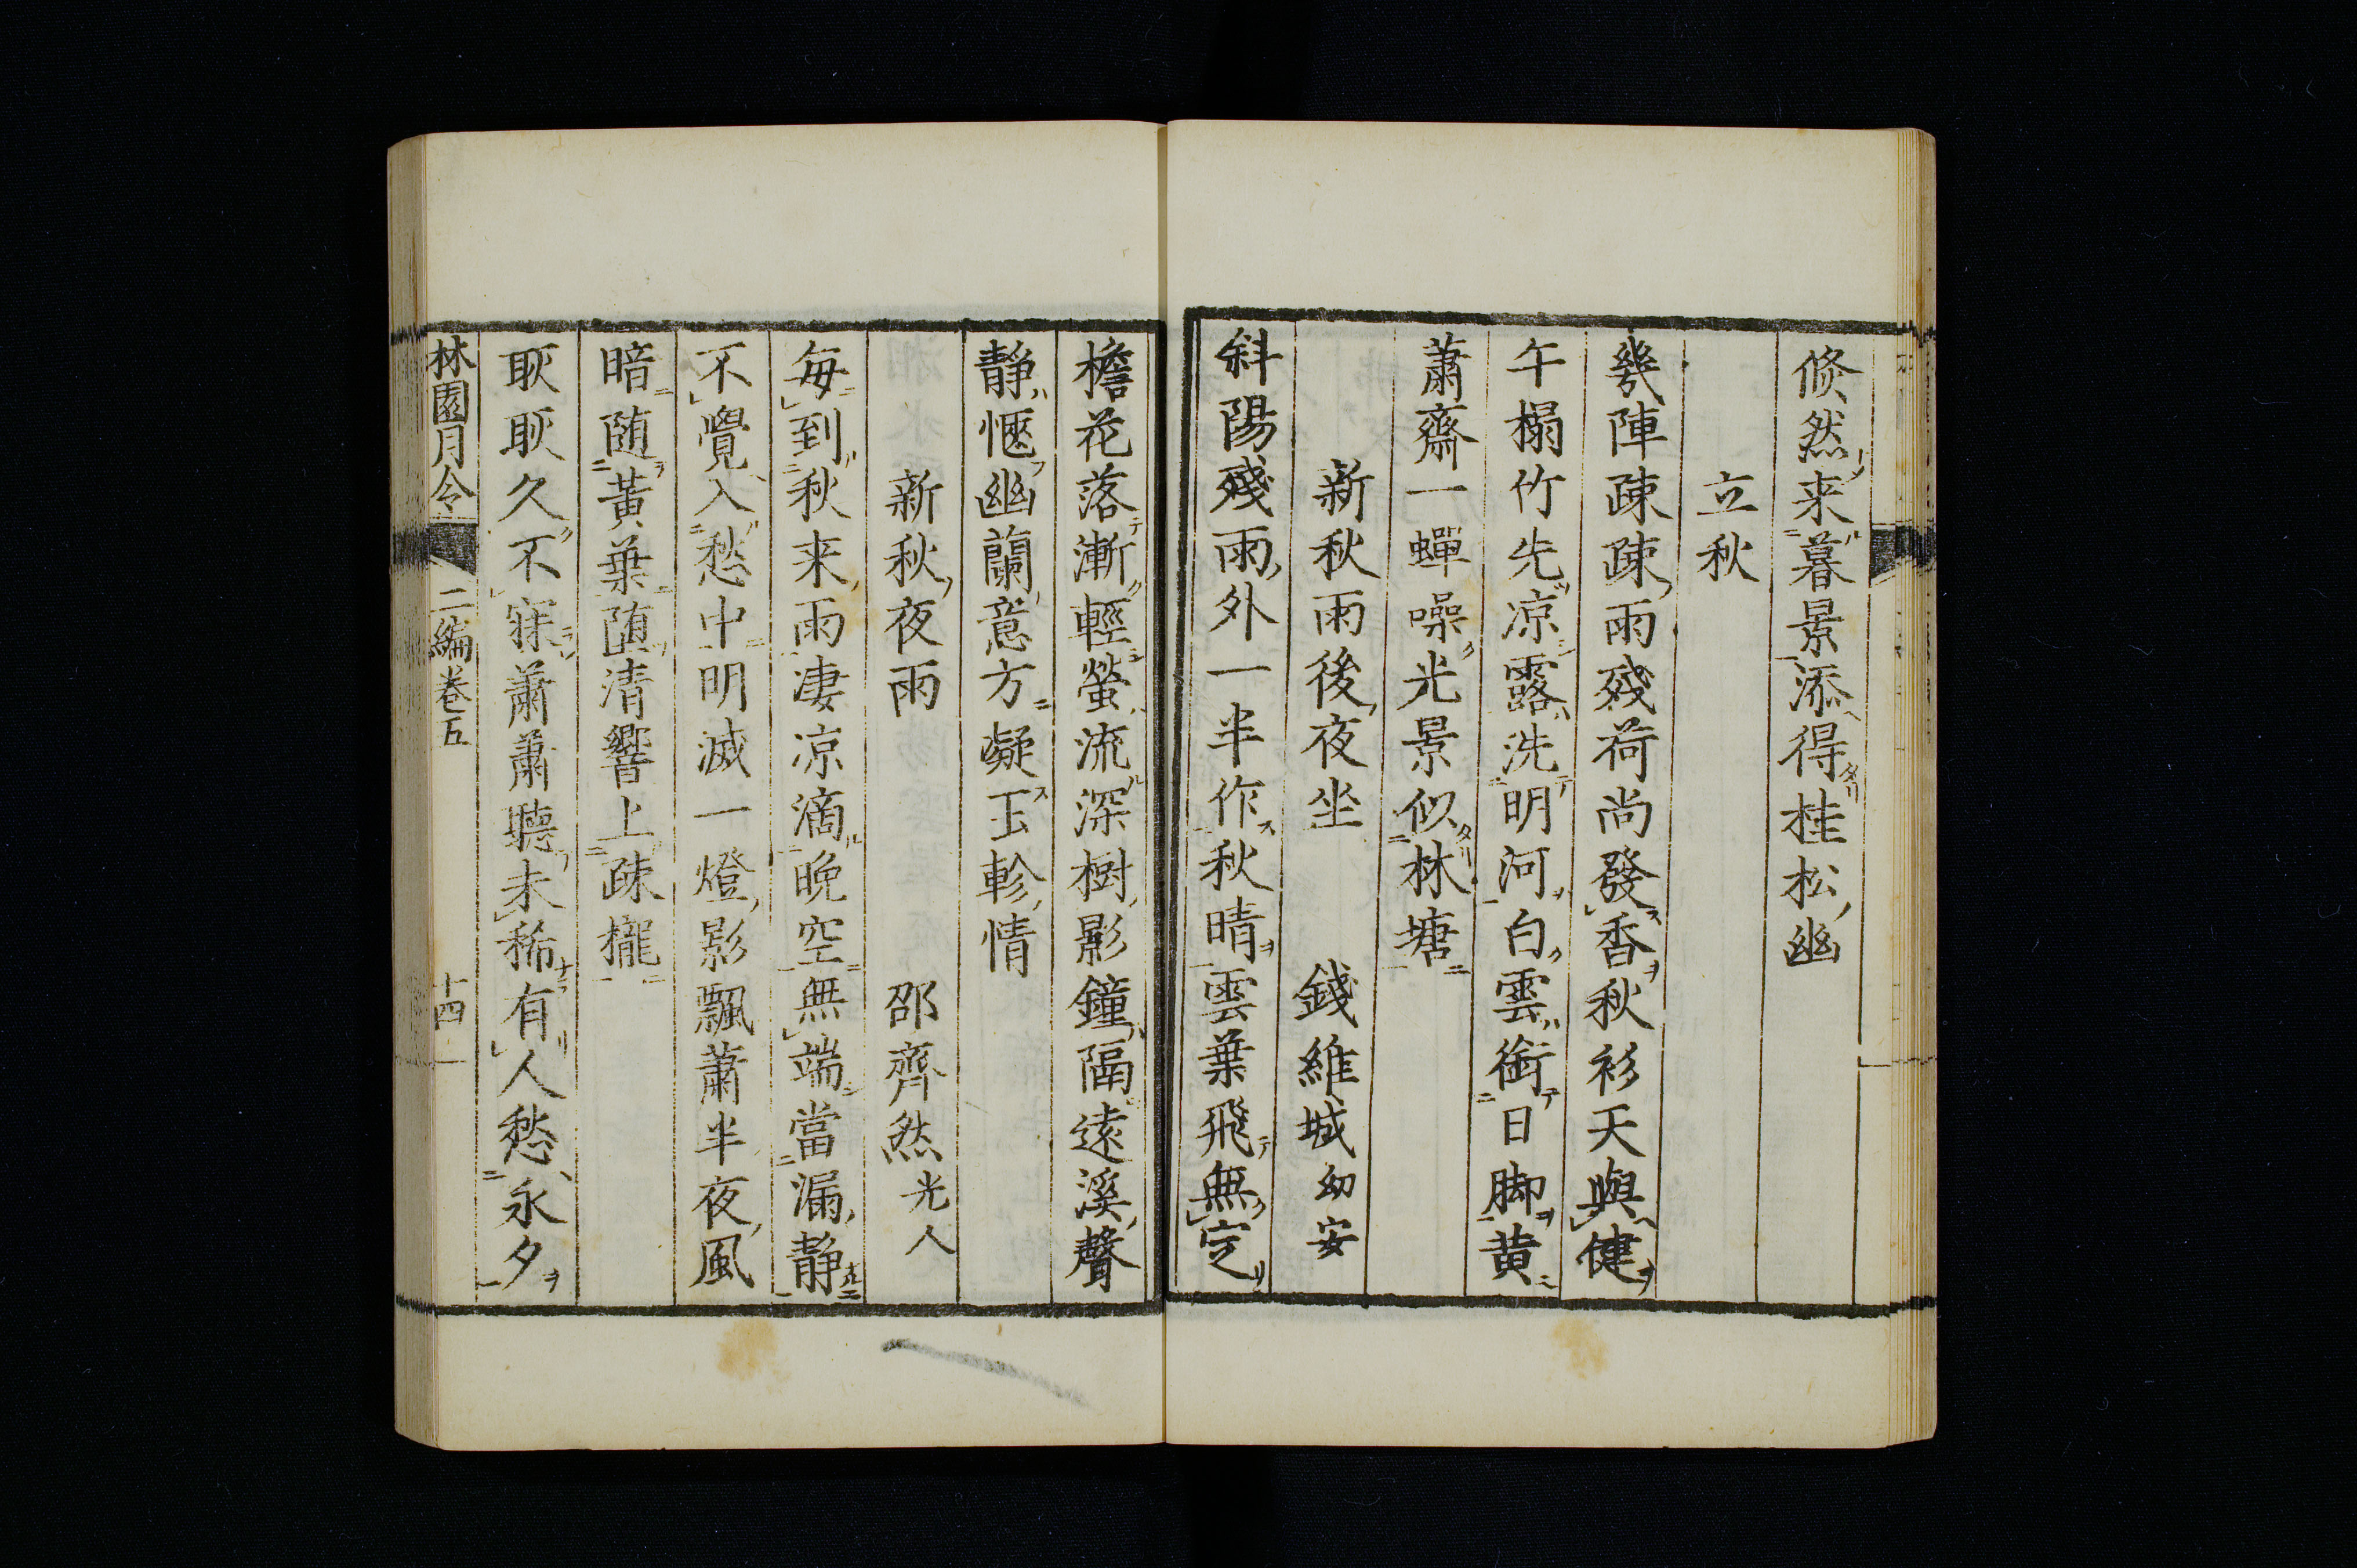 倐然来暮景添得桂松幽
立秋
幾陣疎疎雨殘荷尚發香秋衫天與健
午榻竹先凉露洗明河白雲銜日脚黄
蕭齋一蟬噪光景似林塘
新秋雨後夜坐 錢維城幼安
斜陽殘雨外一半作秋晴雲葉飛無定
檐花落漸輕螢流深樹影鐘隔遠溪聲
静愜幽蘭意方凝玉軫情
新秋夜雨 邵齊然光人
毎到秋来雨凄凉滴晩空無端當漏静
不覺入愁中明滅一燈影飄蕭半夜風
暗随黄葉堕清響上疎櫳
耿耿久不寐蕭蕭聽未稀有人愁永夕
林園月令 二編卷五 十四